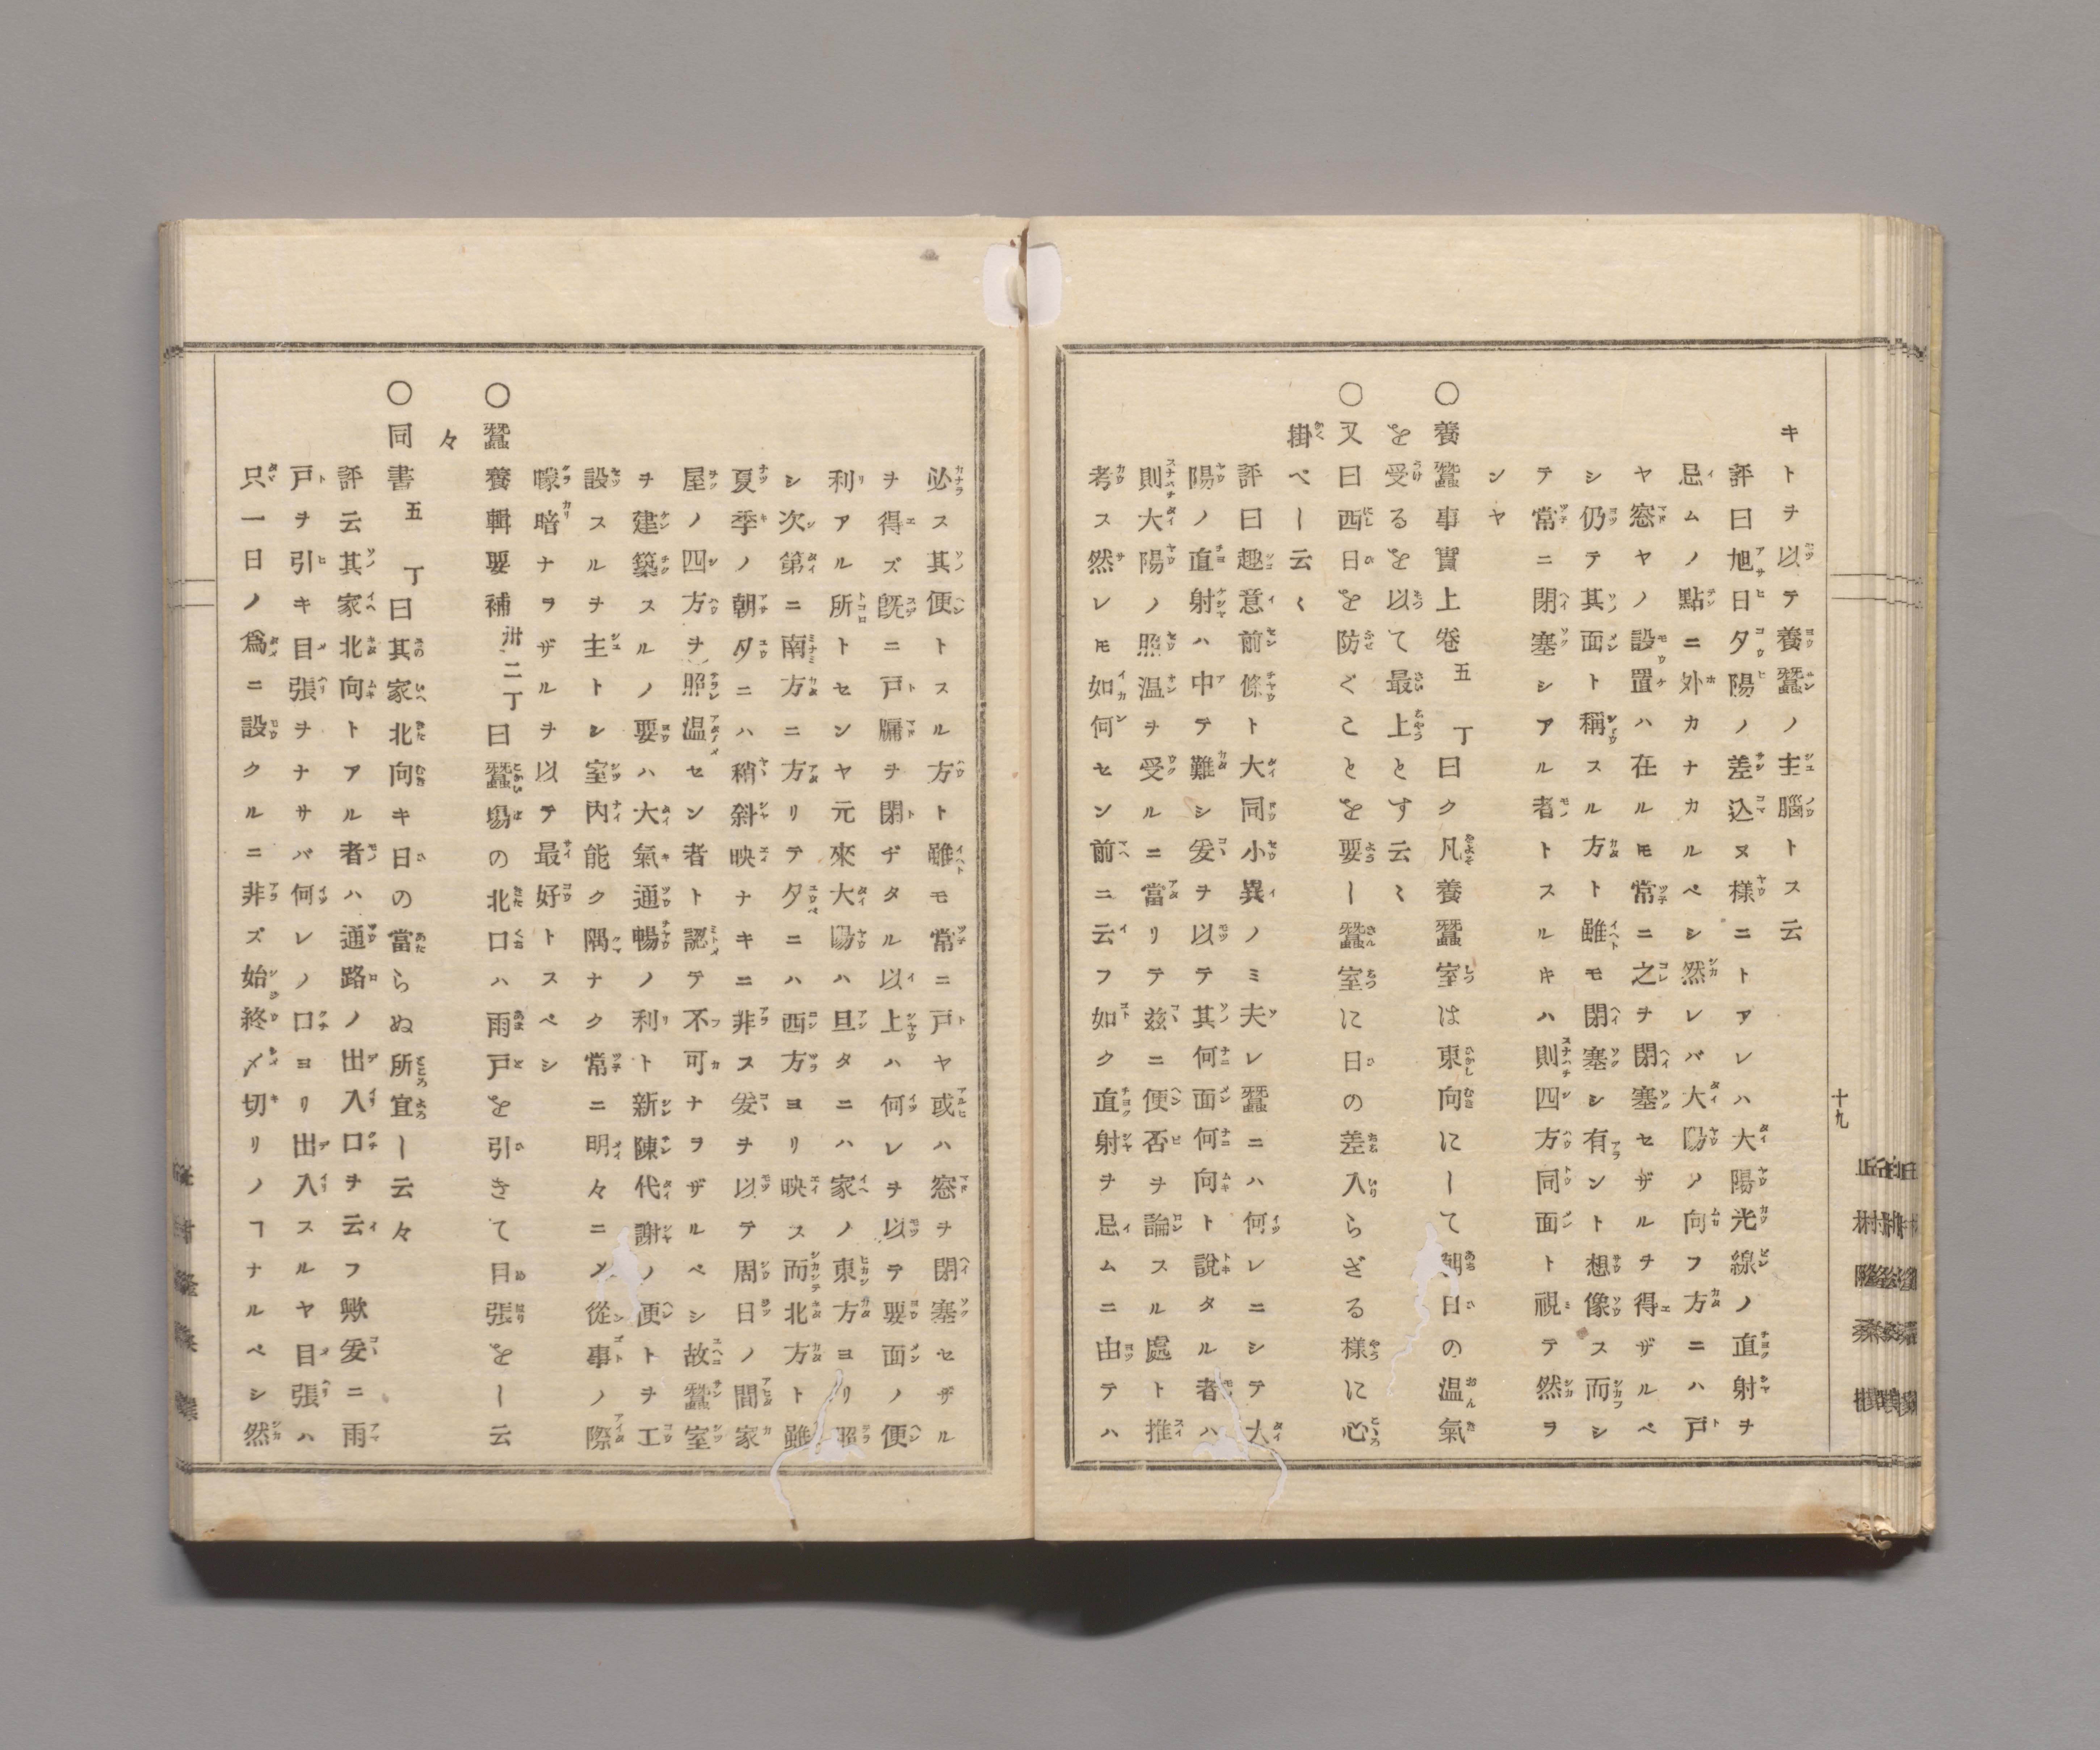 キトヲ以テ養蠶ノ主腦トス云
評曰旭日夕陽ノ差込ヌ様ニトアレハ大陽光線ノ直射ヲ
忌ムノ點ニ外カナカルベシ然レバ大陽ノ向フ方ニハ戸
ヤ窓ヤノ設置ハ在ルモ常ニ之ヲ閉塞セザルヲ得ザルベ
シ仍テ其面ト稱スル方ト雖モ閉塞シ有ラント想像ス而シ
テ常ニ閉塞シアル者トスルキハ則四方同面ト視テ然ヲ
ンヤ
○養蠶事實上卷五丁曰ク凡養蠶室は東向にして朝日の温氣
を受るを以て最上とす云〻
○又曰西日を防ぐことを要し蠶室に日の差入らざる様に心
掛べし云〻
評曰趣意前條ト大同小異ノミ夫レ蠶ニハ何レニシテ大
陽ノ直射ハ中テ難シ爰ヲ以テ其何面何向ト說タル者ハ
則大陽ノ照温ヲ受ルニ當リテ玆ニ便否ヲ論スル處ト推
考ス然レモ如何セン前ニ云フ如ク直射ヲ忌ムニ由テハ
十九
必ス其便トスル方ト雖モ常ニ戸ヤ或ハ窓ヲ閉塞セザル
ヲ得ズ旣ニ戸牖ヲ閉ヂタル以上ハ何レヲ以テ要面ノ便
利アル所トセンヤ元來大陽ハ旦タニハ家ノ東方ヨリ照
シ次第ニ南方ニ方リテ夕ニハ西方ヨリ映ス而北方ト雖
夏季ノ朝夕ニハ稍斜映ナキニ非ス爰ヲ以テ周日ノ間家
屋ノ四方ヲ照温セン者ト認テ不可ナヲザルベシ故蠶室
ヲ建築スルノ要ハ大氣通暢ノ利ト新陳代謝ノ便トヲ工
設スルヲ主トシ室内能ク隅ナク常ニ明々ニシ從事ノ際
曚暗ナヲザルヲ以テ最好トスベシ
○蠶養輯要補卅二丁曰蠶場の北口ハ雨戸を引きて目張をし云
々
○同書五丁曰其家北向キ日の當らぬ所宜し云々
評云其家北向トアル者ハ通路ノ出入口ヲ云フ歟爰ニ雨
戸ヲ引キ目張ヲナサバ何レノ口ヨリ出入スルヤ目張ハ
只一日ノ爲ニ設クルニ非ズ始終〆切リノヿナルベシ然